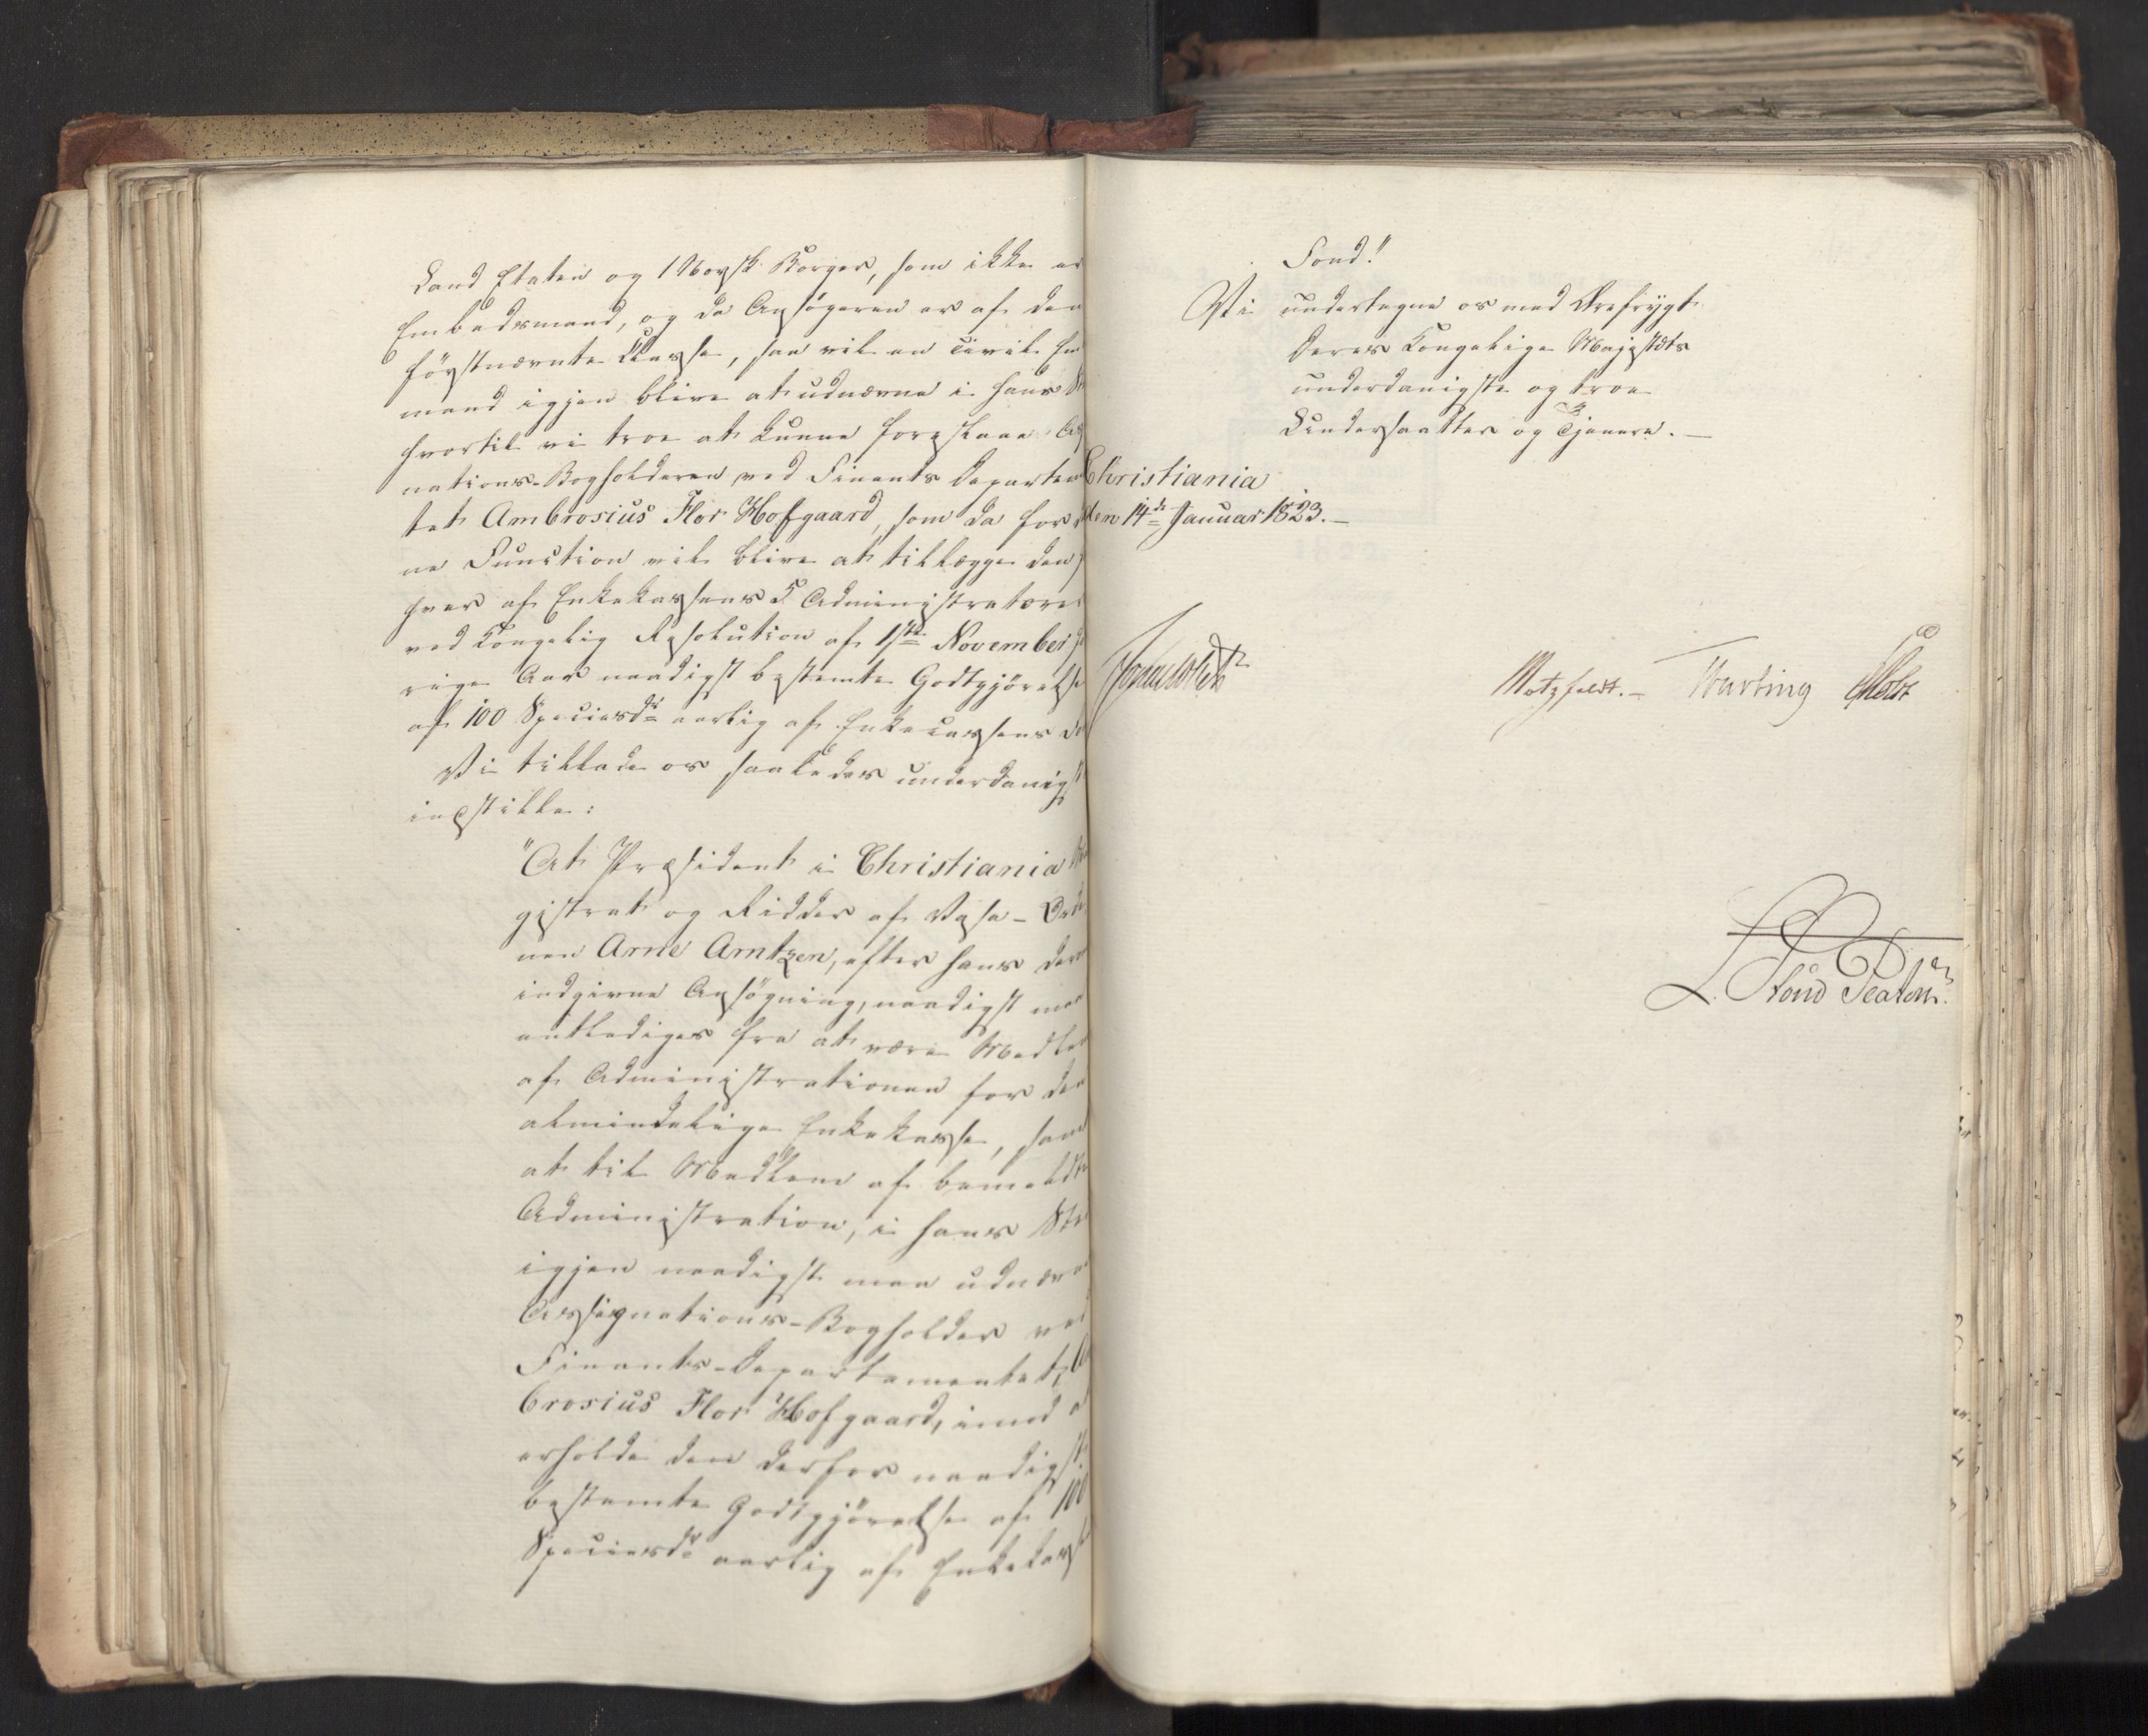 Land Etaten og 1 Norsk Borger, som ikke er
Embedsmand, og da Ansøgeren er af den
førstnævnte Classe, saa vil en Civil Em
mand igjen blive at udnævne i hans
hvortil vi troe at kunne foreslaae
nations-Bogholderen ved Finants Departem
tet Ambrosius Flor Hofgaard, som da for
ne Function vil blive at tillægge den
hver af Enkekassens 5 Administratorer
ved Kongelig Resolution af 1ste November
rige Aar naadigst bestemte Godtgjørelse
af 100 Speciesdr aarlig af Enkecassens
Vi tillade os saaledes underdanigst
indstille:
"At Præsident i Christiania
gistrat og Ridder af Vasa-Orde
nen Arne Arntzen, efter hans derom
indgivne Ansøgning, naadigst maa
entlediges fra at være Medlem
af Administrationen for den
almindelige Enkekasse, samt
at til Medlem af bemeldte
Administration, i hans
igjen naadigst maa udnævnes
Assignations-Bogholder ved
Finants-Departementet,
brosius Flor Hofgaard, imod at
erholde den derfor naadigst
bestemte Godtgjørelse af 100
Speciesdr aarlig af Enkekass
Fond!"
Vi undertegne os med Ærefrygt
Deres Kongelige Majestæts
underdanigste og troe
Undersaatter og Tjenere.—
Christiania
den 14de Januar 1823.—
Motzfeldt.— Holst